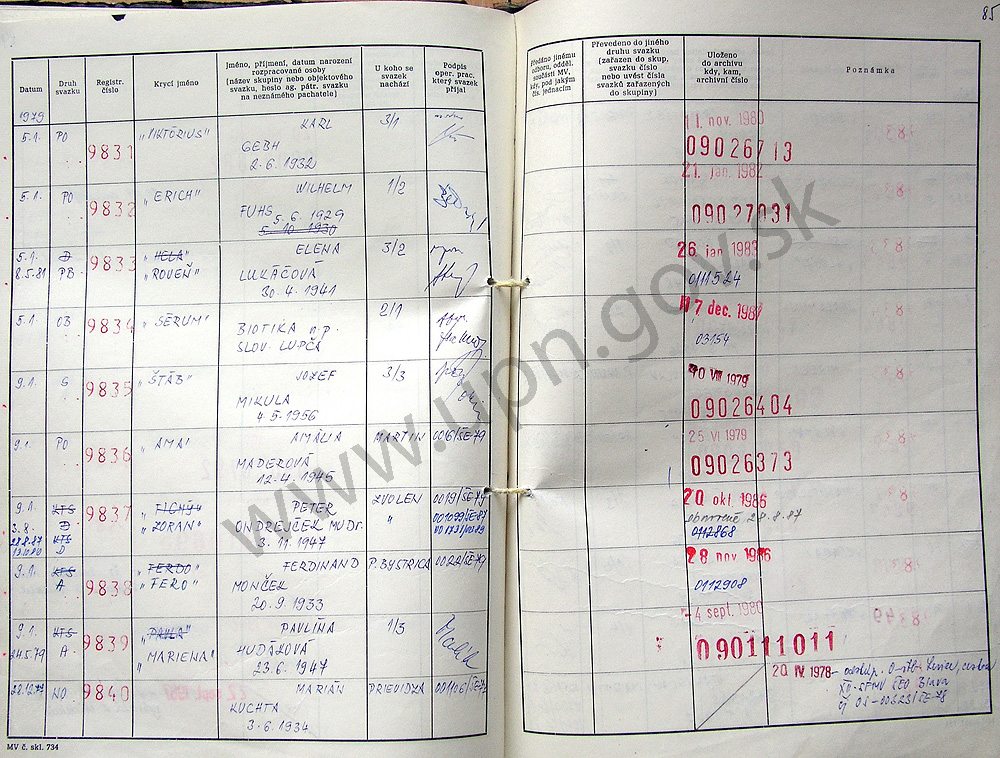 85
Datum
Druh svazku
Registr. číslo
Krycí jméno
Jméno, příjmení, datum narození
rozpracované osoby
(název skupiny nebo objektového
svazku, heslo ag. pátr. svazku
na neznámého pachatele)
U koho se
svazek
nachází
Podpis
oper. prac.
který svazek
přijal
Předáno jinému
odboru, odděl.
součásti MV,
kdy, pod jakým
čís. jednacím
Převedeno do jiného
druhu svazku
(zařazen do skup,
svazku číslo
nebo uvést čísla
svazků zařazených
do skupiny)
Uloženo
do archivu
kdy, kam,
archivní číslo
Poznámka
1979
5.1. PO 9831 „VIKTÓRIUS" KARL 3/1 11. nov. 1980
GEBH 09026713
2.6.1932
5.1. PO 9832 „ERICH" WILHELM 1/2 21. jan. 1982
FUHS 5.6.1929 09027031
5.10.1930
5.1. D 9833 „HELA" ELENA 3/2 26 jan. 1983
8.5.81 PB „ROVEŇ" LUKÁČOVÁ 0111524
30.4.1941
5.1. OB 9834 „SÉRUM" 2/1 17 dec. 1987
BIOTIKA n.p. 03154
SLOV. LUPČA
9.1. G 9835 „ŠTÁB" JOZEF 3/3 10 VIII 1979
MIKULA 09026404
4.5.1956
9.1. PO 9836 „AMA" AMÁLIA MARTIN 0016/SE-79 25 VI 1979
MADEROVÁ 09026373
12.4.1945
9.1. KTS 9837 „TICHÝ" PETER ZVOLEN 0019/SE-79 20 okt. 1986
3.8. D „ZORAN" ONDREJČEK MUDr. " 001099/SE-87 obnovené 28.8.87
28.8.87 KTS 3.11.1947 0112868
D
9.1. KTS 9838 „FERDO" FERDINAND P. BYSTRICA 0022/SE-79 28 nov 1986
A „FERO" MONČEK 0112908
20.9.1933
9.1. KTS 9839 „PAVLA" PAVLÍNA 1/3 -4 sept. 1980
24.5.79 A „MARIENA" HUDÁKOVÁ 090111011
23.6.1947
NO 9840 MARIÁN PRIEVIDZA 20 IV. 1978
KUCHTA
3.6.1934
MV č. skl. 734
www.upn.gov.sk